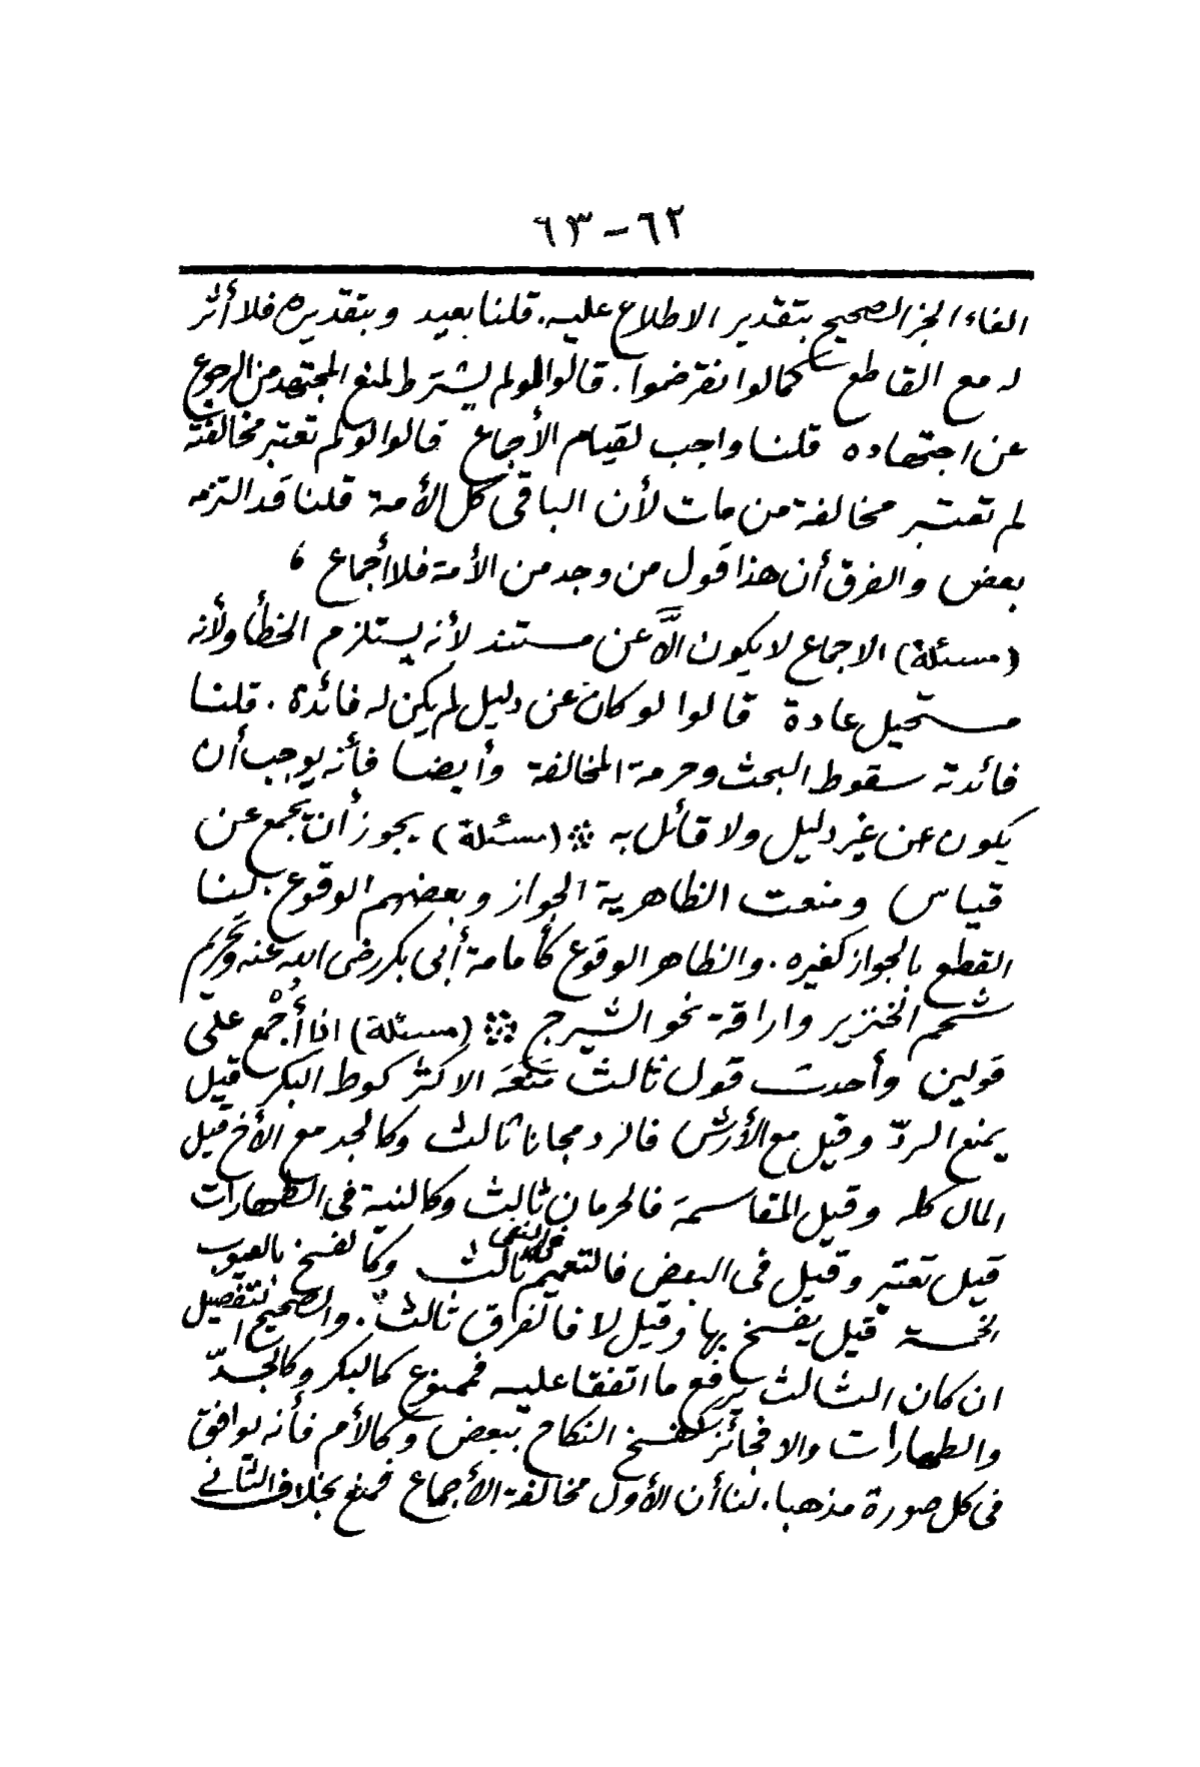 ٦٢-٦٣
الغاء الخبر الصحيح بتقدير الاطلاع عليه. قلنا بعيد وبتقديره فلا أثر
له مع القاطع كما لو انقرضوا. قالوا لو لم يشترط لمنع المجتهد من الرجوع
عن اجتهاده قلنا واجب لقيام الأجماع قالوا لو لم تعتبر مخالفته
لم تعتبر مخالفة من مات لأن الباقى كل الأمة قلنا قد التزمه
بعض والفرق أن هذا قول من وجد من الأمة فلا أجماع ،
(مسئلة) الاجماع لا يكون الَّا عن مستند لأنه يستلزم الخطأ ولأنه
مستحيل عادة قالوا لو كان عن دليل لم يكن له فائدة . قلنا
فائدته سقوط البحث وحرمة المخالفة وأيضا فأنه يوجب أن
يكون عن غير دليل ولا قائل به ※ (مسئلة) يجوز أن يجمع عن
قياس ومنعت الظاهرية الجواز وبعضهم الوقوع لنا
القطع بالجواز كغيره . والظاهر الوقوع كأمامة أبى بكر رضى الله عنه وتحريم
شحم الخنزير واراقة نحو الشيرج ※ (مسئلة) اذا أُجْمع على
قولين وأحدث قول ثالث مَنَعَه الاكثر كوطء البكر قيل
يمنع الردّ وقيل مع الأرش فالرد مجانا ثالث وكالجد مع الأخ قيل
المال كله وقيل المقاسمة فالحرمان ثالث وكالنية فى الطهارات
قيل تعتبر وقيل فى البعض فالتعميم فى النفى ثالث وكالفسخ بالعيوب
الخمسة قيل يفسخ بها وقيل لا فالفرق ثالث . والصحيح التفصيل
ان كان الثالث يرفع ما اتفقا عليه فممنوع كالبكر وكالجدّ
والطهارات والا فجائز كفسخ النكاح ببعض وكالأم فأنه يوافق
فى كل صورة مذهبا . لنا أن الأول مخالفة الأجماع فمنع بخلاف الثانى